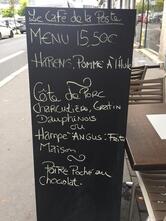 Le Café de la Poste
MENU 15,50€
HARENG POMME A l'Huile
Côte de Porc
Charcutière, Gratin
Dauphinois
ou
Hampe Angus: Frites
Maison
Poire Pochée au
Chocolat.